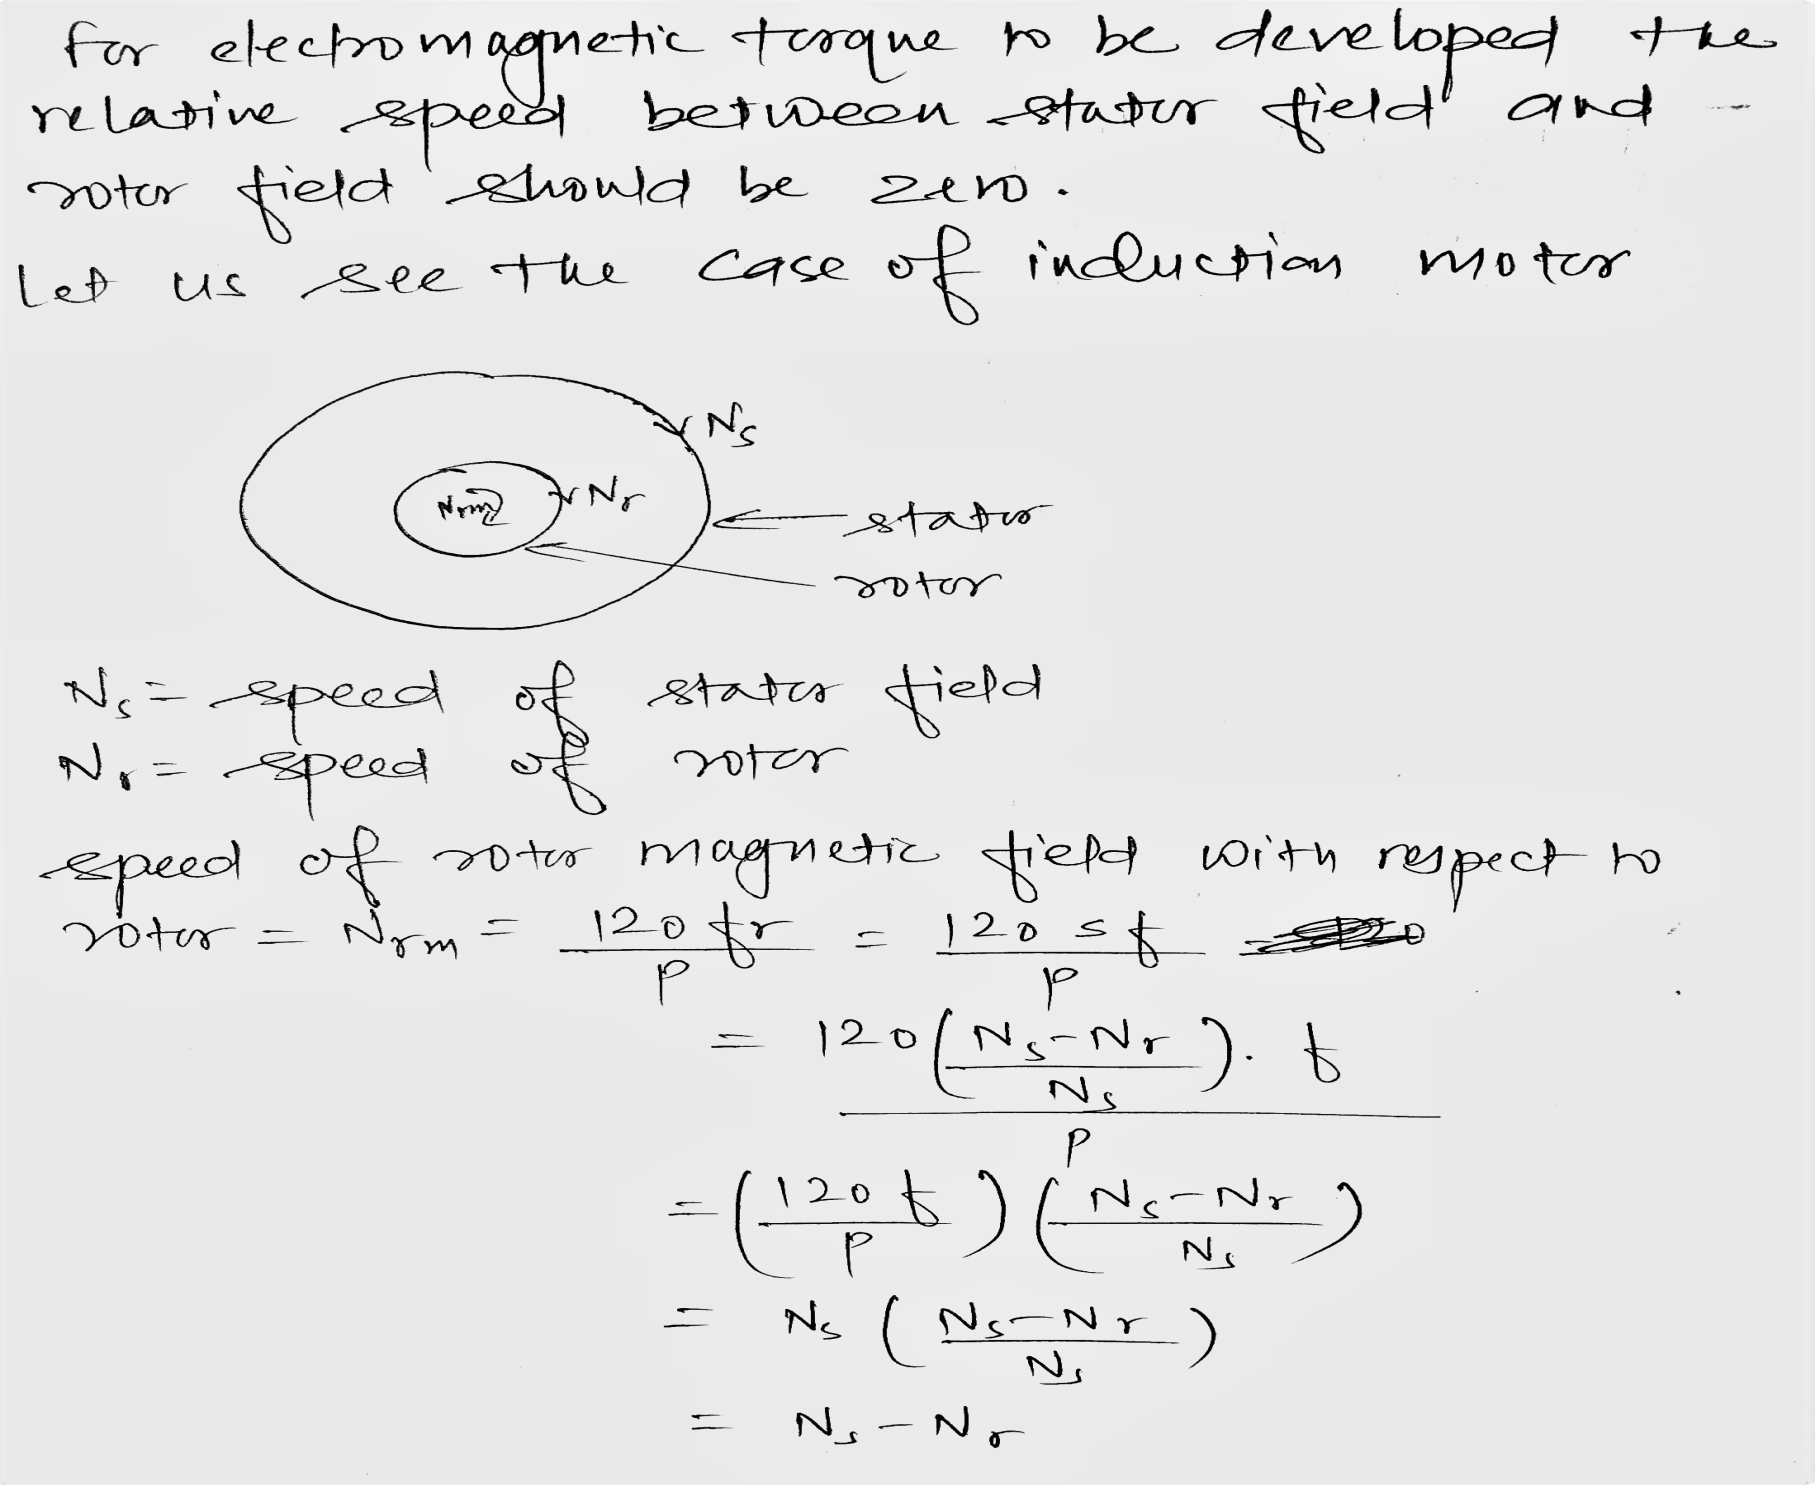 for electromagnetic torque to be developed the
relative speed between stator field and
rotor field should be zero.
Let us see the case of induction motor
Ns
Nrm Nr
stator
rotor
Ns = speed of stator field
Nr = speed of rotor
speed of rotor magnetic field with respect to
rotor = Nrm = 120 fr / P = 120 s f / P
= 120 ( Ns - Nr / Ns ) . f / P
= ( 120 f / P ) ( Ns - Nr / Ns )
= Ns ( Ns - Nr / Ns )
= Ns - Nr